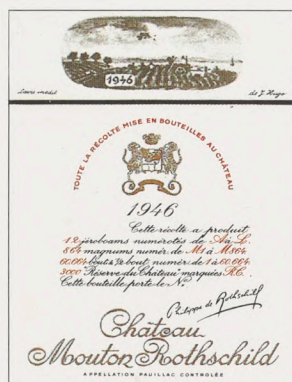 1946
Dessin inédit de J. Hugo
TOUTE LA RÉCOLTE MISE EN BOUTEILLES AU CHÂTEAU
1946
Cette récolte a produit
12 jéroboams numérotés de A à L.
864 magnums numér. de M1 à M864
60.664 bout. & ½ bout. numér. de 1 à 60.664
3000 "Réserve du Château" marquées R.C.
Cette bouteille porte le No
Philippe de Rothschild
Château
Mouton Rothschild
APPELLATION PAUILLAC CONTRÔLÉE